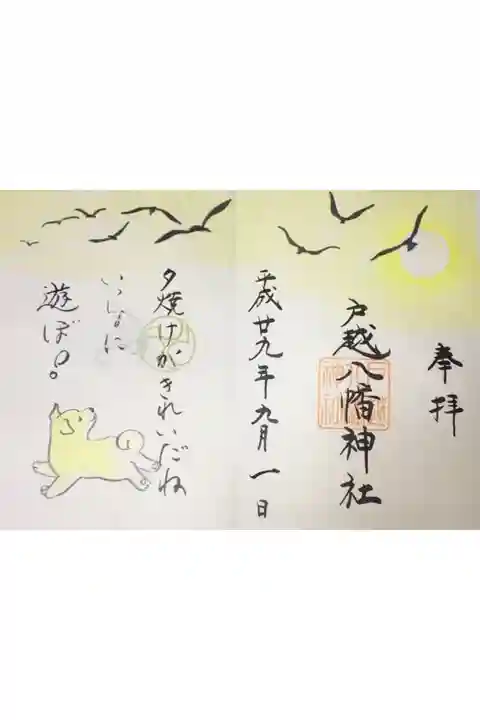 奉拝
戸越八幡神社
平成廿九年九月一日
夕焼けがきれいだね
いっしょに
遊ぼ!。